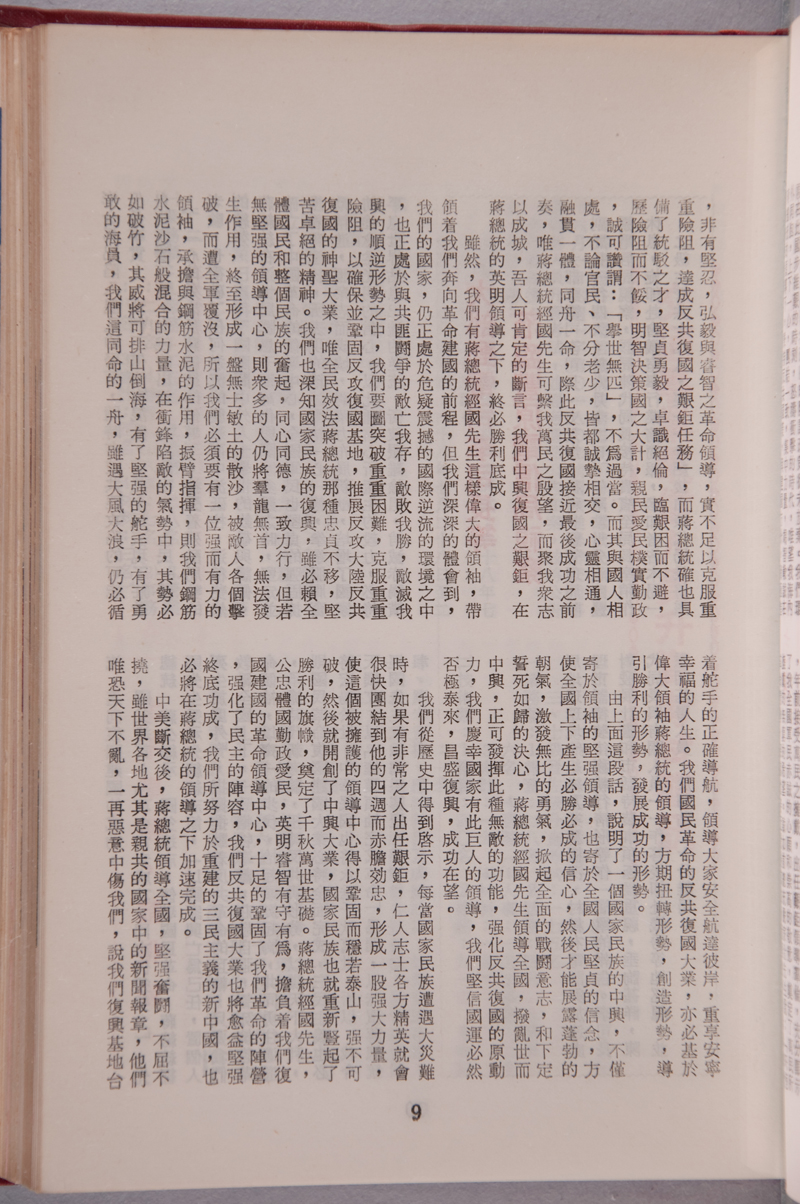 ，非有堅忍，弘毅與睿智之革命領導，實不足以克服重
重險阻，達成反共復國之艱鉅任務」，而蔣總統確也具
備了統馭之才，堅貞勇毅，卓識絕倫，臨艱困而不避，
歷險阻而不餒，明智決策國之大計，親民愛民樸實勤政
，誠可讚謂：「舉世無匹」，不爲過當。而其與國人相
處，不論官民、不分老少，皆都誠摯相交，心靈相通，
融貫一體，同舟一命，際此反共復國接近最後成功之前
奏，唯蔣總統經國先生可繫我萬民之殷望，而聚我衆志
以成城，吾人可肯定的斷言，我們中興復國之艱鉅，在
蔣總統的英明領導之下，終必勝利底成。
雖然，我們有蔣總統經國先生這樣偉大的領袖，帶
領着我們奔向革命建國的前程，但我們深深的體會到，
我們的國家，仍正處於危疑震撼的國際逆流的環境之中
，也正處於與共匪鬪爭的敵亡我存，敵敗我勝，敵滅我
興的順逆形勢之中，我們要圖突破重重困難，克服重重
險阻，以確保並鞏固反攻復國基地，推展反攻大陸反共
復國的神聖大業，唯全民效法蔣總統那種忠貞不移，堅
苦卓絕的精神。我們也深知國家民族的復興，雖必賴全
體國民和整個民族的奮起，同心同德，一致力行，但若
無堅强的領導中心，則衆多的人仍將羣龍無首，無法發
生作用，終至形成一盤無士敏土的散沙，被敵人各個擊
破，而遭全軍覆沒，所以我們必須要有一位强而有力的
領袖，承擔與鋼筋水泥的作用，振臂指揮，則我們鋼筋
水泥沙石般混合的力量，在衝鋒陷敵的氣勢中，其勢必
如破竹，其威將可排山倒海，有了堅强的舵手，有了勇
敢的海員，我們這同命的一舟，雖遇大風大浪，仍必循
着舵手的正確導航，領導大家安全航達彼岸，重享安寧
幸福的人生。我們國民革命的反共復國大業，亦必基於
偉大領袖蔣總統的領導，方期扭轉形勢，創造形勢，導
引勝利的形勢，發展成功的形勢。
由上面這段話，說明了一個國家民族的中興，不僅
寄於領袖的堅强領導，也寄於全國人民堅貞的信念，方
使全國上下產生必勝必成的信心，然後才能展露蓬勃的
朝氣，激發無比的勇氣，掀起全面的戰鬪意志，和下定
誓死如歸的決心，蔣總統經國先生領導全國，撥亂世而
中興，正可發揮此種無敵的功能，强化反共復國的原動
力，我們慶幸國家有此巨人的領導，我們堅信國運必然
否極泰來，昌盛復興，成功在望。
我們從歷史中得到啓示，每當國家民族遭遇大災難
時，如果有非常之人出任艱鉅，仁人志士各方精英就會
很快團結到他的四週而赤膽効忠，形成一股强大力量，
使這個被擁護的領導中心得以鞏固而穩若泰山，强不可
破，然後就開創了中興大業，國家民族也就重新豎起了
勝利的旗幟，奠定了千秋萬世基礎。蔣總統經國先生，
公忠體國勤政愛民，英明睿智有守有爲，擔負着我們復
國建國的革命領導中心，十足的鞏固了我們革命的陣營
，强化了民主的陣容，我們反共復國大業也將愈益堅强
終底功成，我們所努力於重建的三民主義的新中國，也
必將在蔣總統的領導之下加速完成。
中美斷交後，蔣總統領導全國，堅强奮鬪，不屈不
撓，雖世界各地尤其是親共的國家中的新聞報章，他們
唯恐天下不亂，一再惡意中傷我們，說我們復興基地台
9